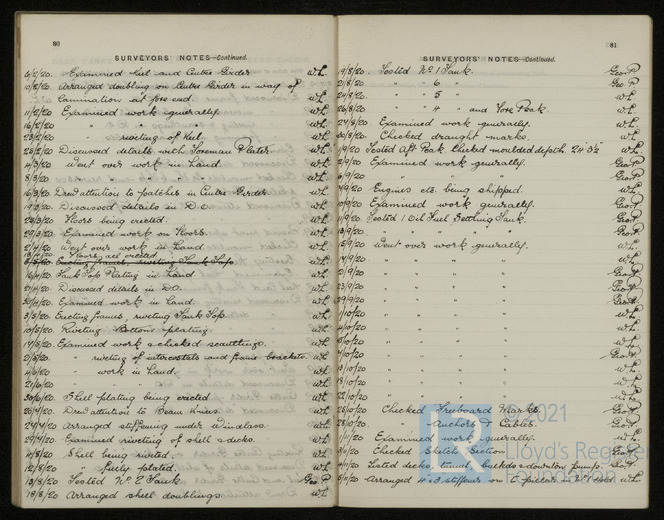 80
SURVEYORS' NOTES—Continued.
6/2/20. Examined Keel and Centre Girder. WL
10/2/20. Arranged doubling on Centre Girder in way of
lamination at fore end. WL
11/2/20. Examined work generally. WL
16/2/20 " " " WL
23/2/20 " riveting of Keel. WL
26/2/20. Discussed details with Foreman Plater. WL
4/3/20. Went over work in hand. WL
8/3/20. " " " " WL
16/3/20. Drew attention to patches in Centre Girder. WL
19/3/20. Discussed details in D.O. WL
25/3/20. Floors being erected. WL
29/3/20. Examined work on Floors. WL
2/4/20. Went over work in hand WL
Floors all erected
Erecting frames, riveting Tank Top WL
16/4/20. Tank Top Plating in hand WL
21/4/20. Discussed details in D.O. WL
30/4/20. Examined work in hand. WL
3/5/20. Erecting frames, riveting Tank Top. WL
10/5/20. Riveting Bottom plating. WL
17/5/20. Examined work & checked scantlings. WL
" riveting of intercostals and frame brackets. WL
" work in hand. WL
" " " WL
30/6/20. Shell plating being erected WL
Drew attention to Beam Knees. WL
Arranged stiffening under windlass. WL
Examined riveting of shell & decks. WL
Shell being riveted. WL
12/8/20. " fully plated. WL
18/8/20. Tested No. 2 Tank Geo. P
18/8/20. Arranged shell doublings. WL
81
SURVEYORS' NOTES—Continued.
19/8/20. Tested No. 1 Tank. Geo. P
21/8/20. " " 6 " Geo. P
24/8/20. " " 5 " WL
26/8/20 " " 4 " and Fore Peak. WL
27/8/20 Examined work generally. WL
30/8/20. Checked draught marks. WL
1/9/20 Tested Aft Peak. Checked moulded depth. 24'3½" WL
2/9/20. Examined work generally. Geo. P
" " " Geo. P
Engines etc. being shipped. WL
10/9/20. Examined work generally. Geo. P
11/9/20. Tested 1 Oil Fuel Settling Tank. Geo. P
13/9/20. " " " " Geo. P
15/9/20 Went over work generally. WL
17/9/20 " " " WL
21/9/20. " " " Geo. P
23/9/20. " " " Geo. P
29/9/20. " " " Geo. P
1/10/20 " " " WL
" " " WL
" " " WL
" " " Geo. P
" " " WL
" " " WL
" " " WL
26/10/20 Checked Freeboard Marks. Geo. P
28/10/20. " Anchors & Cables. Geo. P
Examined work generally. WL
Checked Sketch Section Geo. P
Tested decks, tunnel, bulkds & downton pump. Geo. P
Arranged stiffeners on WL
© 2021
Lloyd's Register